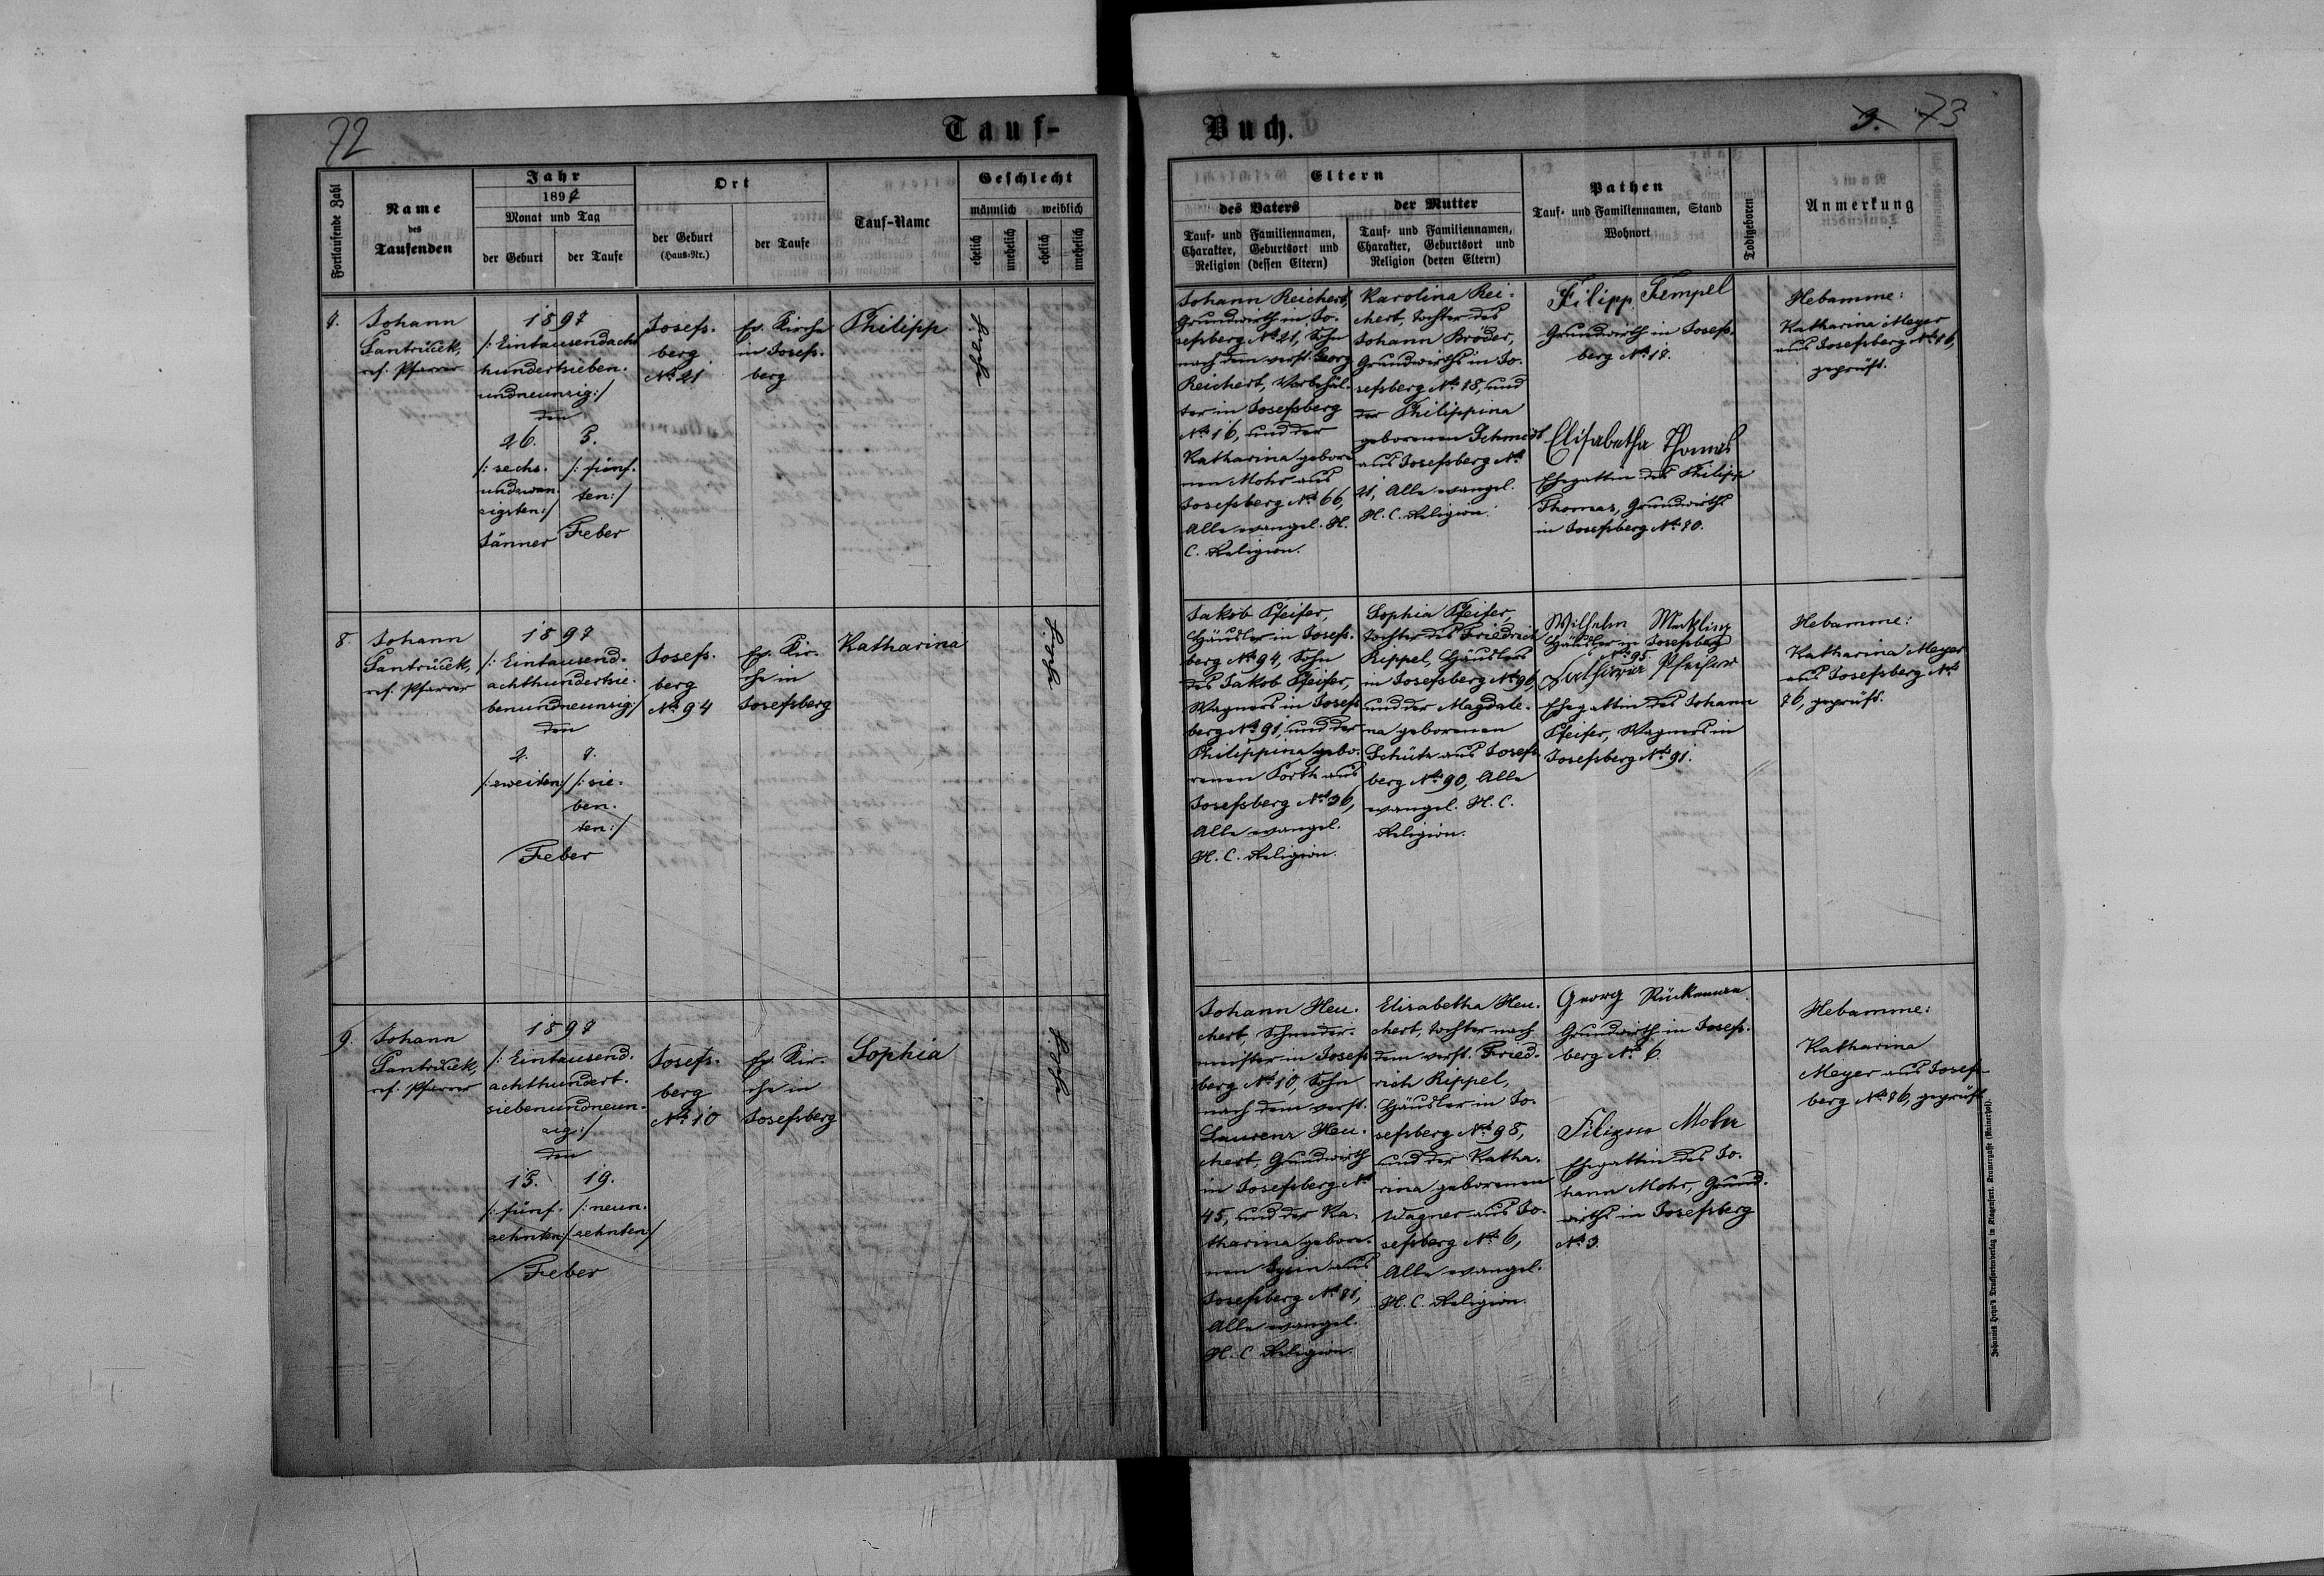 72
Tauf-
Fortlaufende Zahl
Name
des
Taufenden
Jahr
1897
Monat und Tag
der Geburt
der Taufe
Ort
der Geburt
(Haus-Nr.)
der Taufe
Tauf-Name
Geschlecht
männlich
weiblich
ehelich
unehelich
ehelich
unehelich
7.
Johann
ref. Pfarrer
1897
/: Eintausendacht
hundertsieben-
undneunzig:/
den
26.
/: sechs-
undzwan-
zigsten:/
Jänner
5.
/: fünf-
ten:/
Feber
Josefs-
berg
No. 21
Ev. Kirche
in Josefs-
berg
Philipp
ehelich
8
Johann
ref. Pfarrer
1897
/: Eintausend-
achthundertsie-
benundneunzig:/
den
2.
/: zweiten:/
7.
/: sie-
ben-
ten:/
Feber
Josefs-
berg
No. 94
Ev. Kir-
che in
Josefsberg
Katharina
ehelich
9.
Johann
ref. Pfarrer
1897
/: Eintausend-
achthundert-
siebenundneun-
zig:/
den
15.
/: fünf-
zehnten:/
19.
/: neun-
zehnten:/
Feber
Josefs-
berg
No. 10
Ev. Kir-
che in
Josefsberg
Sophia
ehelich
Buch.
9. 73
Eltern
des Vaters
Tauf- und Familiennamen,
Charakter, Geburtsort und
Religion (dessen Eltern)
der Mutter
Tauf- und Familiennamen,
Charakter, Geburtsort und
Religion (deren Eltern)
Pathen
Tauf- und Familiennamen, Stand
Wohnort
Todtgeboren
Anmerkung
Johann Reichert,
Grundwirth in Jo-
sefsberg No. 21, Sohn
nach dem verst. Georg
Reichert, Vorbehäl-
ter in Josefsberg
No. 16, und der
Katharina gebore-
nen Mohr aus
Josefsberg No. 66,
Alle evangel. H.
C. Religion.
Karolina Rei-
chert, Tochter des
Johann Bröder,
Grundwirths in Jo-
sefsberg No. 18, und
der Philippina
geborenen Schmidt
aus Josefsberg No.
21, Alle evangel.
H. C. Religion.
Filipp Tempel
Grundwirth in Josefs-
berg No. 17.
Elisabetha Thomas
Ehegattin des Philipp
Thomas, Grundwirths
in Josefsberg No. 80.
Hebamme:
Katharina Meyer
aus Josefsberg No. 76,
geprüft.
Jakob Pfeifer,
Häusler in Josefs-
berg No. 94, Sohn
des Jakob Pfeifer,
Wagners in Josefs-
berg No. 91, und der
Philippina gebo-
renen Porth aus
Josefsberg No. 36,
Alle evangel.
H. C. Religion.
Sophia Pfeifer,
Tochter des Friedrich
Rippel, Häuslers
in Josefsberg No. 96,
und der Magdale-
na geborenen
Schütz aus Josefs-
berg No. 90, Alle
evangel. H. C.
Religion.
Wilhelm
Häusler in Josefsberg
No. 95.
Pfeifer
Ehegattin des Johann
Pfeifer, Wagners in
Josefsberg No. 91.
Hebamme:
Katharina Meyer
aus Josefsberg No.
76, geprüft.
Johann Heu-
chert, Schneider-
meister in Josefs-
berg No. 10, Sohn
nach dem verst.
Laurenz Heu-
chert, Grundwirth
in Josefsberg No.
45, und der Ka-
tharina gebore-
nen aus
Josefsberg No. 81,
Alle evangel.
H. C. Religion.
Elisabetha Heu-
chert, Tochter nach
dem verst. Fried-
rich Rippel,
Häusler in Jo-
sefsberg No. 98,
und der Katha-
rina geborenen
Wagner aus Jo-
sefsberg No. 6,
Alle evangel.
H. C. Religion.
Georg
Grundwirth in Josefs-
berg No. 6.
Mohr
Ehegattin des Jo-
hann Mohr, Grund-
wirths in Josefsberg
No. 3.
Hebamme:
Katharina
Meyer aus Josefs-
berg No. 76, geprüft.